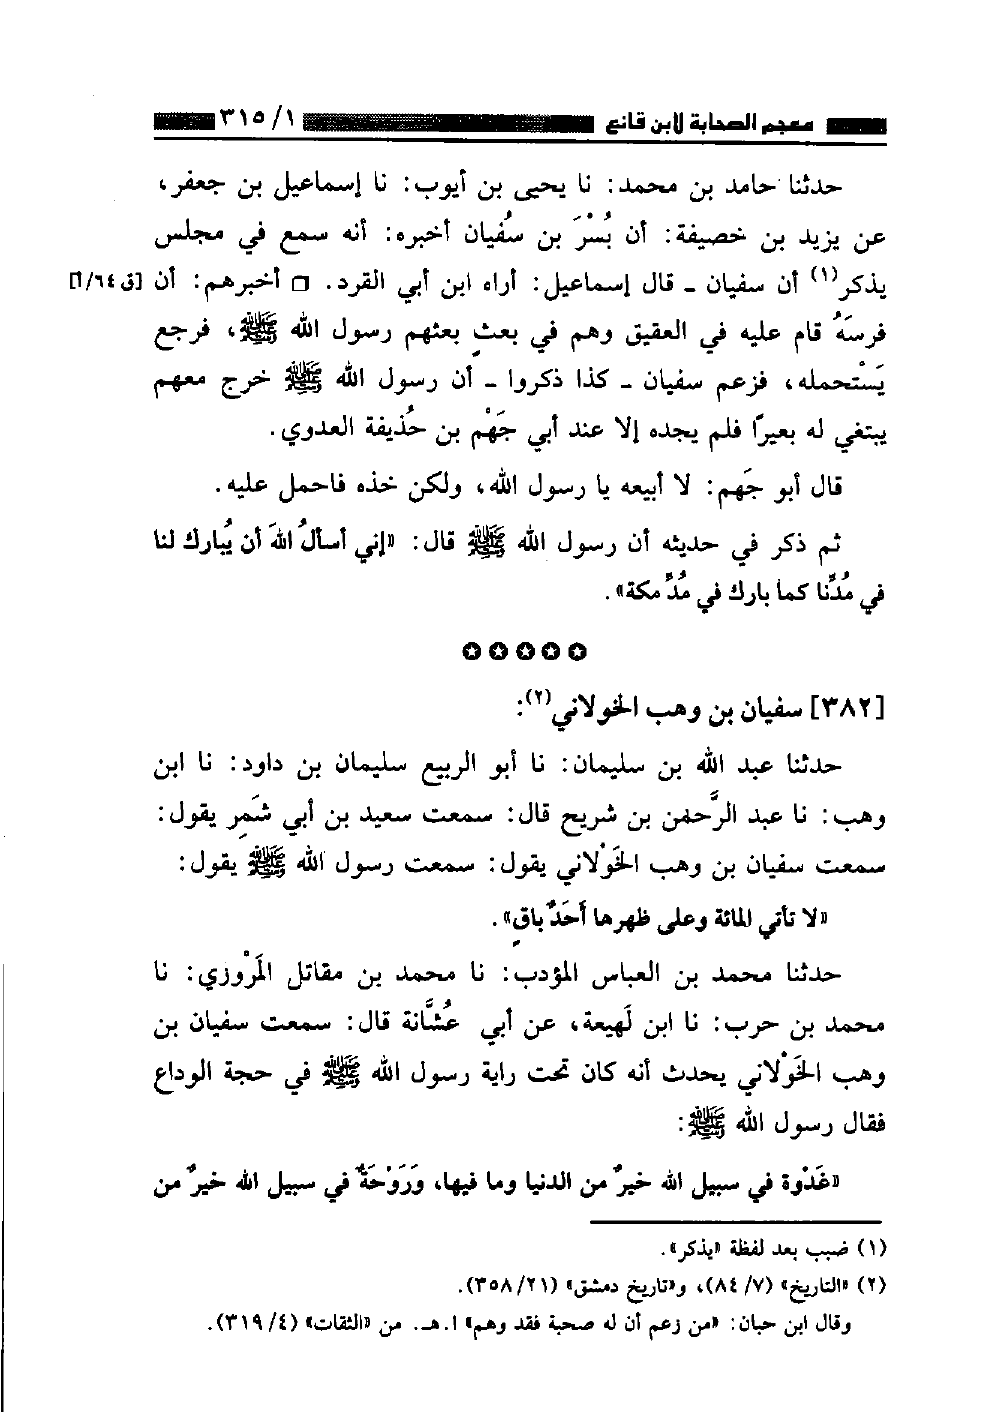 معجم الصحابة لابن قانع ٣١٥/١
حدثنا حامد بن محمد: نا يحيى بن أيوب: نا إسماعيل بن جعفر،
عن يزيد بن خصيفة: أن بُسْرَ بن سُفيان أخبره: أنه سمع في مجلس
يذكر(١) أن سفيان ـ قال إسماعيل: أراه ابن أبي القرد. □ أخبرهم: أن [ق ٦٤/أ]
فرسَهُ قام عليه في العقيق وهم في بعثٍ بعثهم رسول الله ﷺ، فرجع
يَسْتحمله، فزعم سفيان ـ كذا ذكروا ـ أن رسول الله ﷺ خرج معهم
يبتغي له بعيرًا فلم يجده إلا عند أبي جَهْم بن حُذيفة العدوي.
قال أبو جَهم: لا أبيعه يا رسول الله، ولكن خذه فاحمل عليه.
ثم ذكر في حديثه أن رسول الله ﷺ قال: «إني أسألُ اللهَ أن يُبارك لنا
في مُدِّنا كما بارك في مُدِّ مكة».
[٣٨٢] سفيان بن وهب الخولاني(٢):
حدثنا عبد الله بن سليمان: نا أبو الربيع سليمان بن داود: نا ابن
وهب: نا عبد الرَّحمٰن بن شريح قال: سمعت سعيد بن أبي شَمِر يقول:
سمعت سفيان بن وهب الخَوْلاني يقول: سمعت رسول الله ﷺ يقول:
«لا تأتي المائة وعلى ظهرها أَحَدٌ باقٍ».
حدثنا محمد بن العباس المؤدب: نا محمد بن مقاتل المَرْوزي: نا
محمد بن حرب: نا ابن لَهيعة، عن أبي عُشَّانة قال: سمعت سفيان بن
وهب الخَوْلاني يحدث أنه كان تحت راية رسول الله ﷺ في حجة الوداع
فقال رسول الله ﷺ:
«غَدْوة في سبيل الله خيرٌ من الدنيا وما فيها، وَرَوْحَةٌ في سبيل الله خيرٌ من
(١) ضبب بعد لفظة «يذكر».
(٢) «التاريخ» (٨٤/٧)، و«تاريخ دمشق» (٣٥٨/٢١).
وقال ابن حبان: «من زعم أن له صحبة فقد وهم» ا.هـ. من «الثقات» (٣١٩/٤).